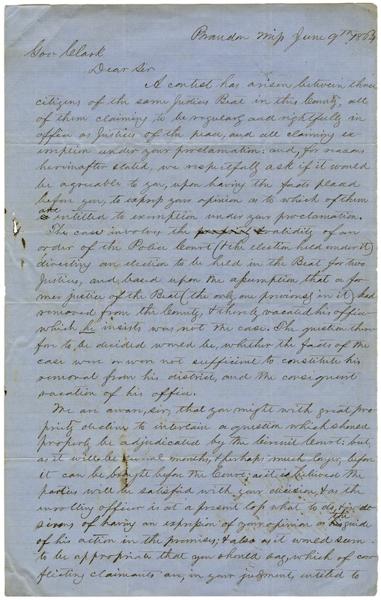 Brandon Mip June 9th 1864
Gov Clark
Dear Sir
A contest has arisen between three
citizens of the same Justices Beat in this County, all
of them claiming to be regularly and rightfully in
office as Justices of the peace, and all claiming ex
emption under your proclamation: and, for reasons
hereinafter stated, we respectfully ask if it would
be agreeable to you, upon having the facts placed
before you, to express your opinion as to which of them
are intitled to exemption under your proclamation.
The case involves the validity of an
order of the Police Court (& the election held under it)
directing an election to be held in the Beat for two
Justices, and based upon the assumption that a for
mer justice of the Beat (the only one previous in it) had
removed from the County, & thereby vacated his office
which he insists was not the case. The question there
for to be decided would be, whether the facts of the
case were or were not sufficient to constitute his
removal from his district, and the consequent
vacation of his office.
We are aware, sir, that you might with great pro
priety decline to intertain a question which should
properly be adjudicated by the Circuit Court: but,
as it will be several months, & perhaps much longer, before
it can be brought before the Court; as it is believed the
parties will be satisfied with your decision, & as the
inrolling officer is at a present loss what to do, & is de
sirous of having an expression of your opinion as the guide
of his action in the premises; & also as it would seem
to be appropriate that you should say, which of con
flicting claimants are, in your judgment, intitled to